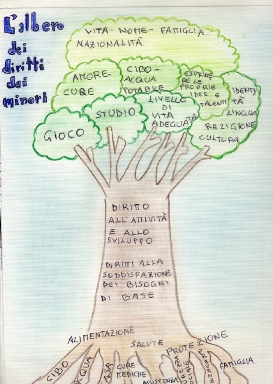 L'albero
dei
diritti
dei
minori
VITA - NOME - FAMIGLIA
NAZIONALITÀ
AMORE-
CURE
CIBO-
ACQUA
POTABILE
ESPRIME
RE LE
PROPRIE
IDEE E
TALENTI
IDENTI
TÀ
LINGUA
RELIGIONE
CULTURA
GIOCO
STUDIO
LIVELLO
DI
VITA
ADEGUATO
DIRITTO
ALL'ATTIVITÀ
E ALLO
SVILUPPO
DIRITTI ALLA
SODDISFAZIONE
DEI BISOGNI
DI BASE
ALIMENTAZIONE
SALUTE
PROTEZIONE
CIBO
ACQUA
CURE
MEDICHE
ASSISTENZA
FAMIGLIA